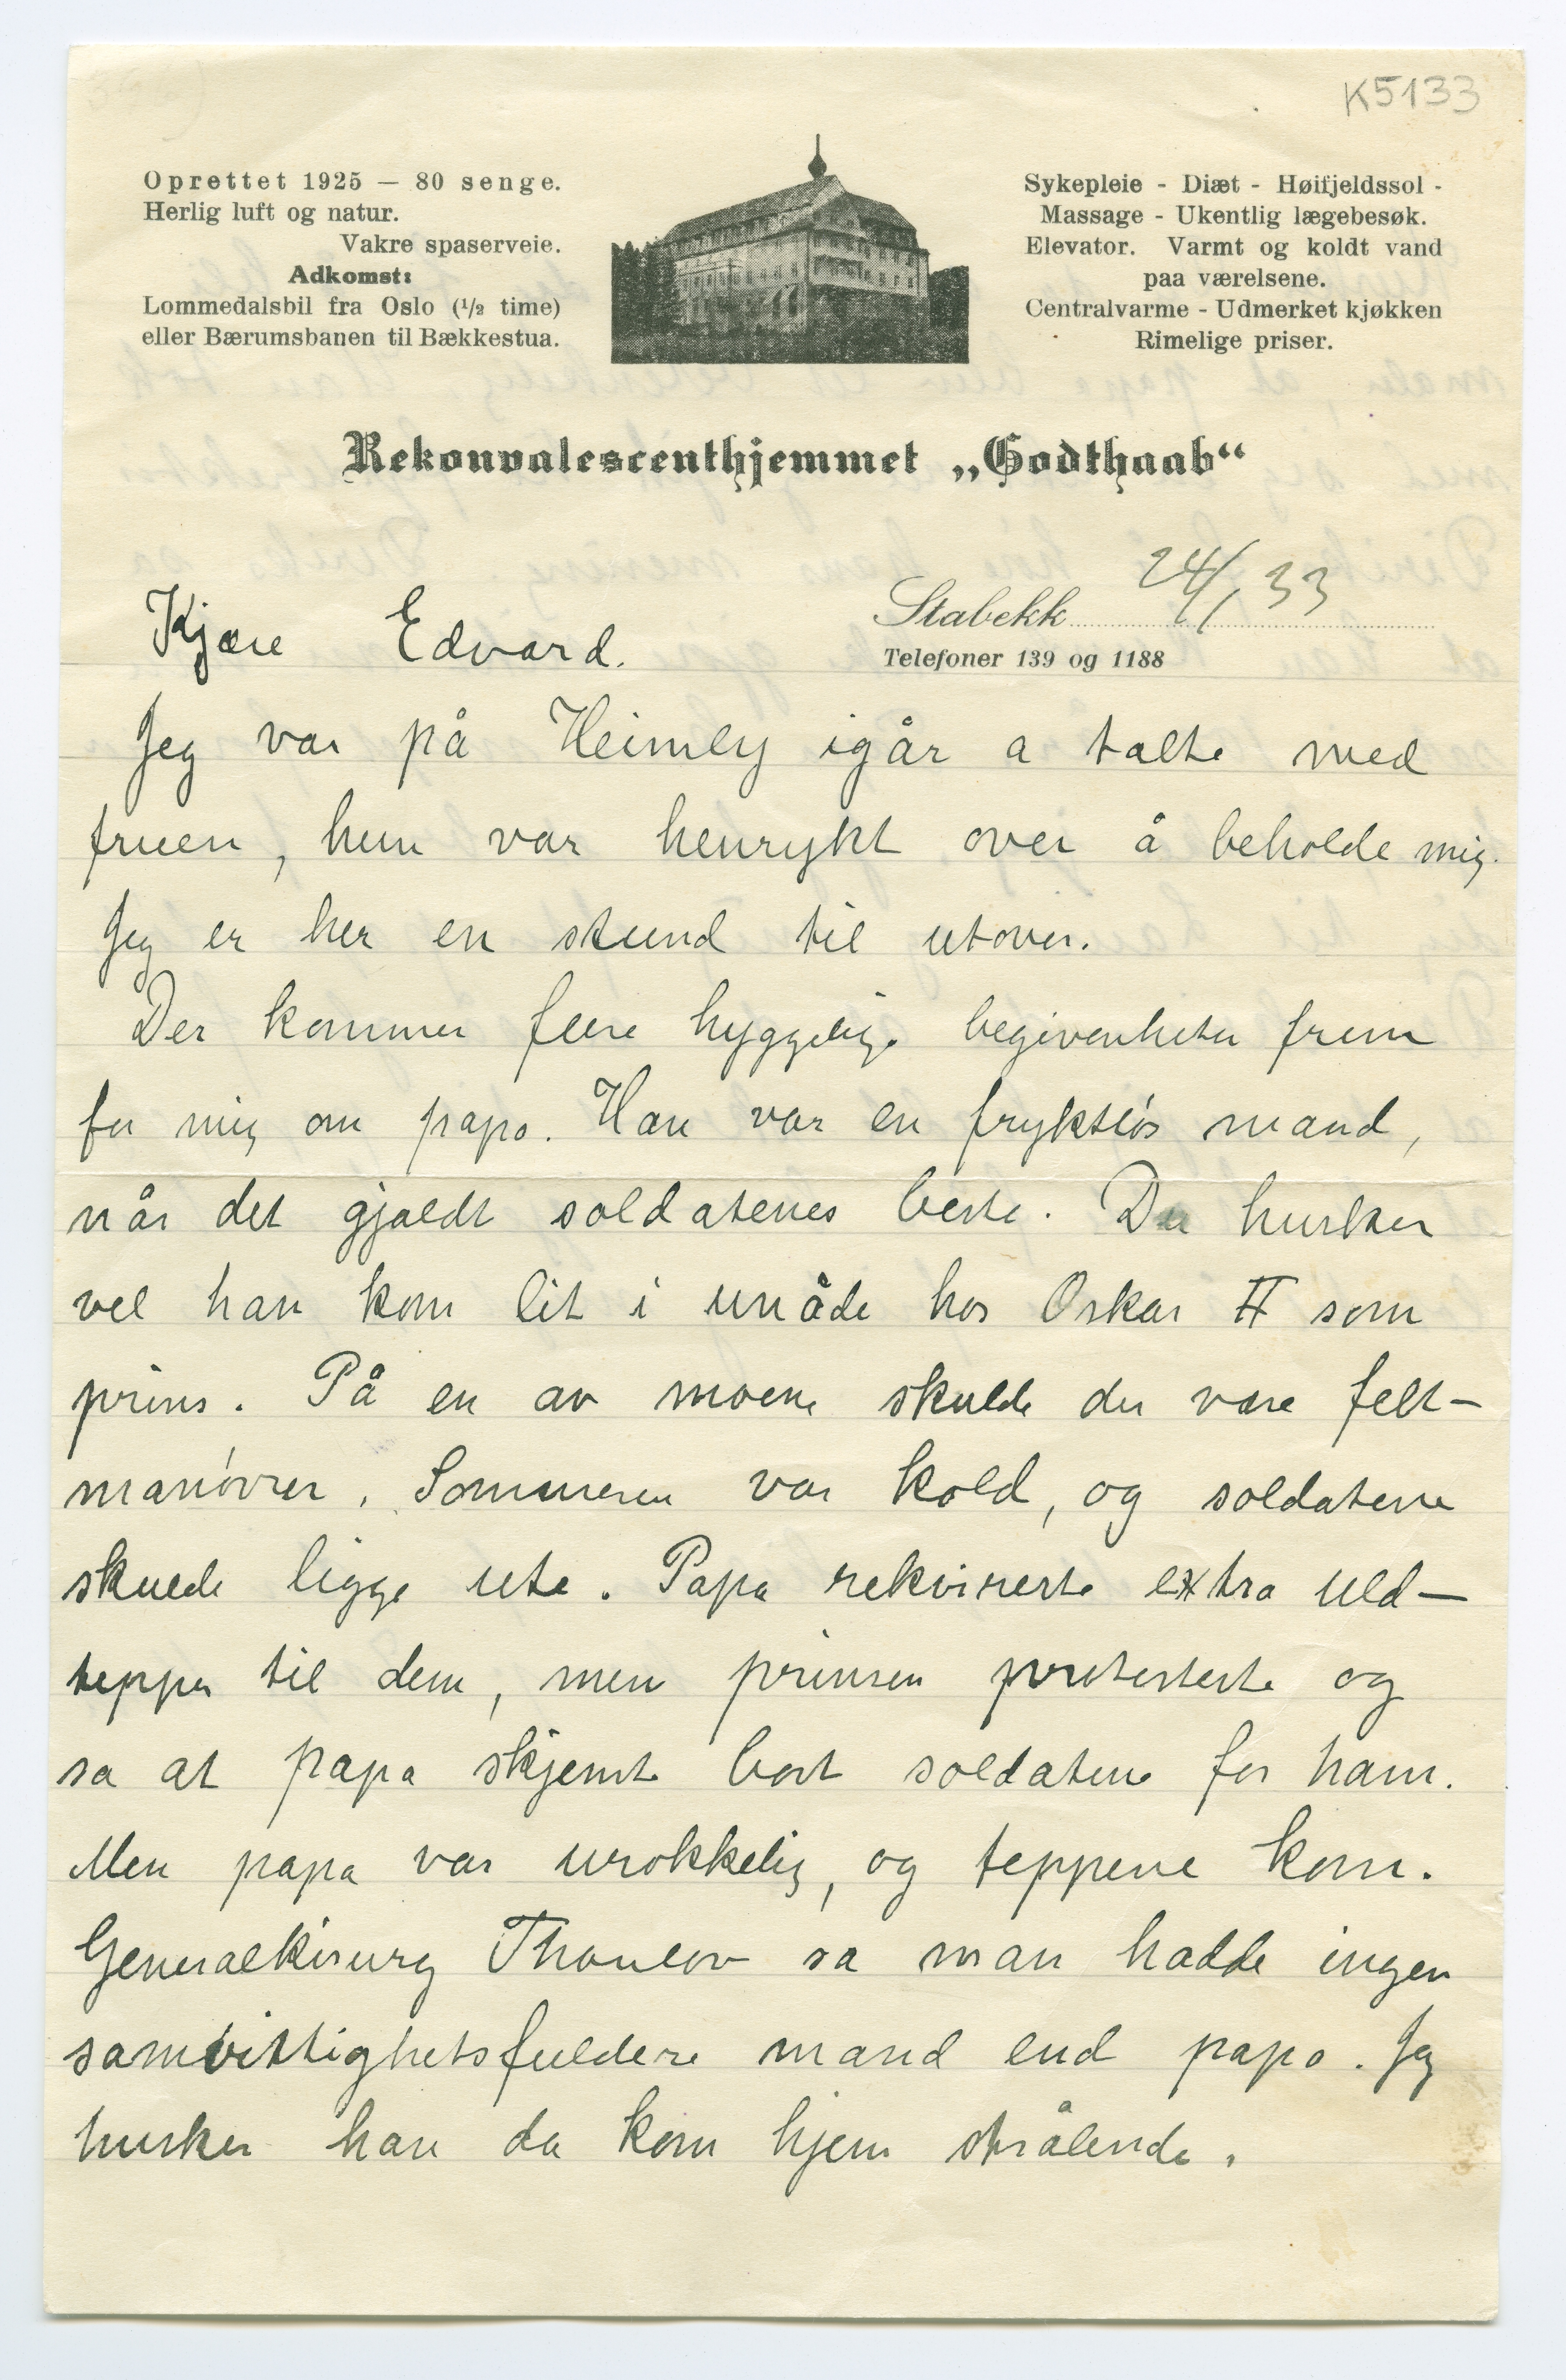 K5133
Oprettet 1925 — 80 senge.
Herlig luft og natur.
Vakre spaserveie.
Adkomst:
Lommedalsbil fra Oslo (1/2 time)
eller Bærumsbanen til Bækkestua.
Sykepleie - Diæt - Høifjeldssol -
Massage - Ukentlig lægebesøk.
Elevator. Varmt og koldt vand
paa værelsene.
Centralvarme - Udmerket kjøkken
Rimelige priser.
Rekonvalescenthjemmet „Godthaab“
Stabekk 24/1 33
Telefoner 139 og 1188
Kjære Edvard.
Jeg var på Heimly igår a talte med
fruen, hun var henrykt over å beholde mig.
Jeg er her en stund til utover.
Der kommer flere hyggelige begivenheter frem
for mig om papa. Han var en fryktløs mand,
når det gjaldt soldatenes beste. Du husker
vel han kom lit i unåde hos Oskar II som
prins. På en av moene skulde der være felt-
manøvrer. Sommeren var kold, og soldatene
skulde ligge ute. Papa rekvirerte extra uld-
tepper til dem, men prinsen protesterte og
sa at papa skjemte bort soldatene for ham.
Men papa var urokkelig, og teppene kom.
Generalkirurg Thaulov sa man hadde ingen
samvittighetsfuldere mand end papa. Jeg
husker han da kom hjem strålende.